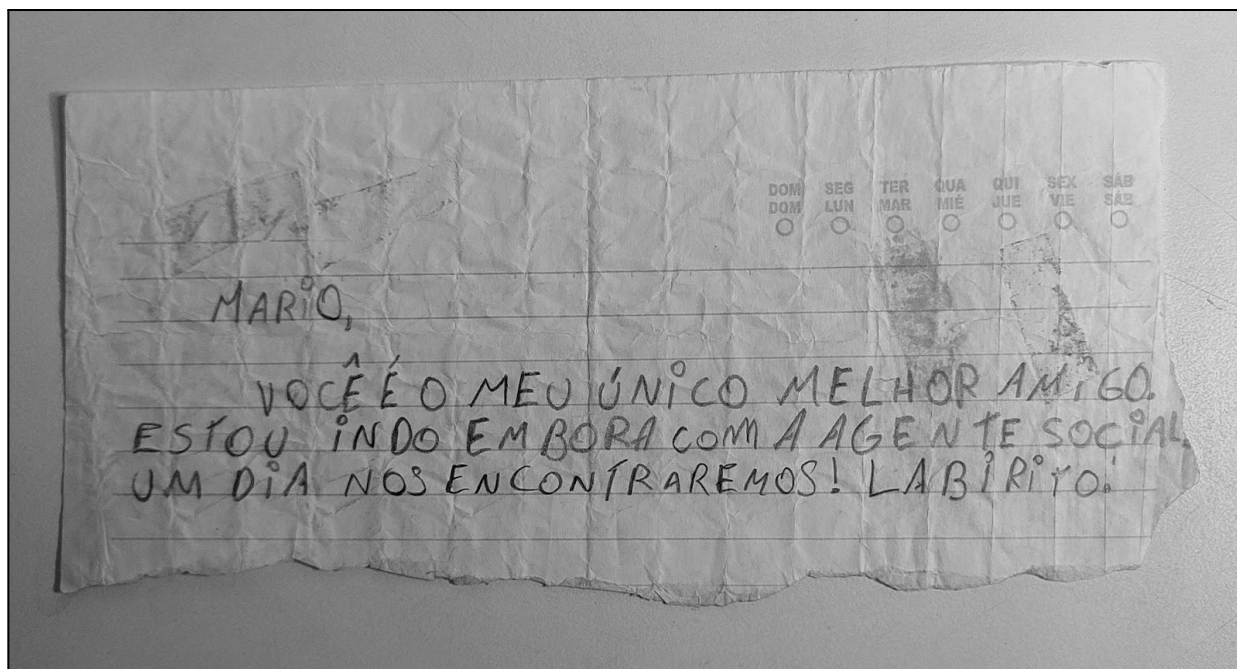 DOM SEG TER QUA QUI SEX SÁB
DOM LUN MAR MIÉ JUE VIE SÁB
MARIO,
VOCÊ É O MEU ÚNICO MELHOR AMIGO.
ESTOU INDO EMBORA COM A AGENTE SOCIAL.
UM DIA NOS ENCONTRAREMOS! LABIRITO!